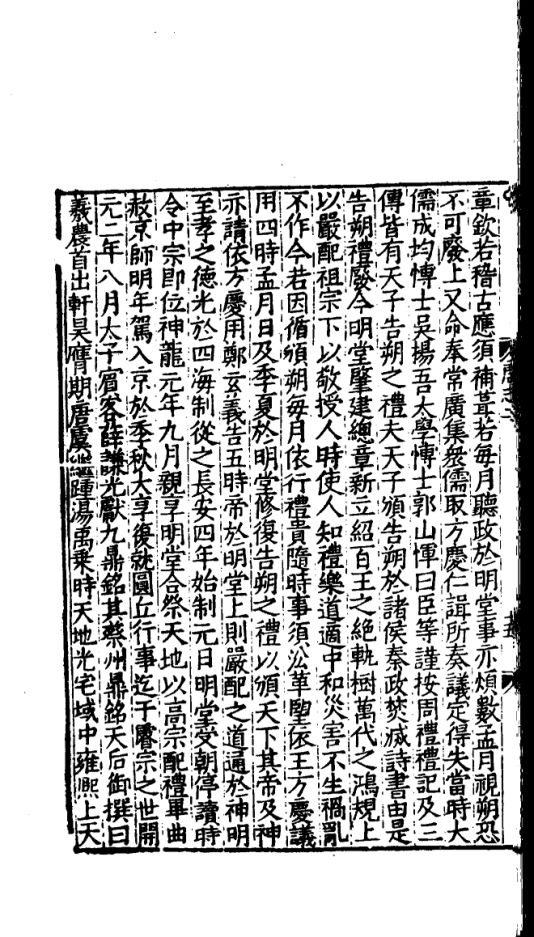 章欽若稽古應須補葺若每月聽政於明堂事亦煩數孟月視朔恐
不可廢上又命奉常廣集衆儒取方慶仁諝所奏議定得失當時大
儒成均博士吳揚吾太學博士郭山惲曰臣等謹按周禮禮記及三
傳皆有天子告朔之禮夫天子頒告朔於諸侯秦政焚滅詩書由是
告朔禮廢今明堂肇建總章新立紹百王之絕軌樹萬代之鴻規上
以嚴配祖宗下以敬授人時使人知禮樂道適中和災害不生禍亂
不作今若因循頒朔每月依行禮貴隨時事須沿革望依王方慶議
用四時孟月日及季夏於明堂修復告朔之禮以頒天下其帝及神
亦請依方慶用鄭玄義告五時帝於明堂上則嚴配之道通於神明
至孝之德光於四海制從之長安四年始制元日明堂受朝停讀時
令中宗即位神龍元年九月親享明堂合祭天地以高宗配禮畢曲
赦京師明年駕入京於季秋大享復就圜丘行事迄于睿宗之世開
元二年八月太子賓客薛謙光獻九鼎銘其蔡州鼎銘天后御撰曰
羲農首出軒昊膺期唐虞繼踵湯禹乘時天地光宅域中雍熙上天